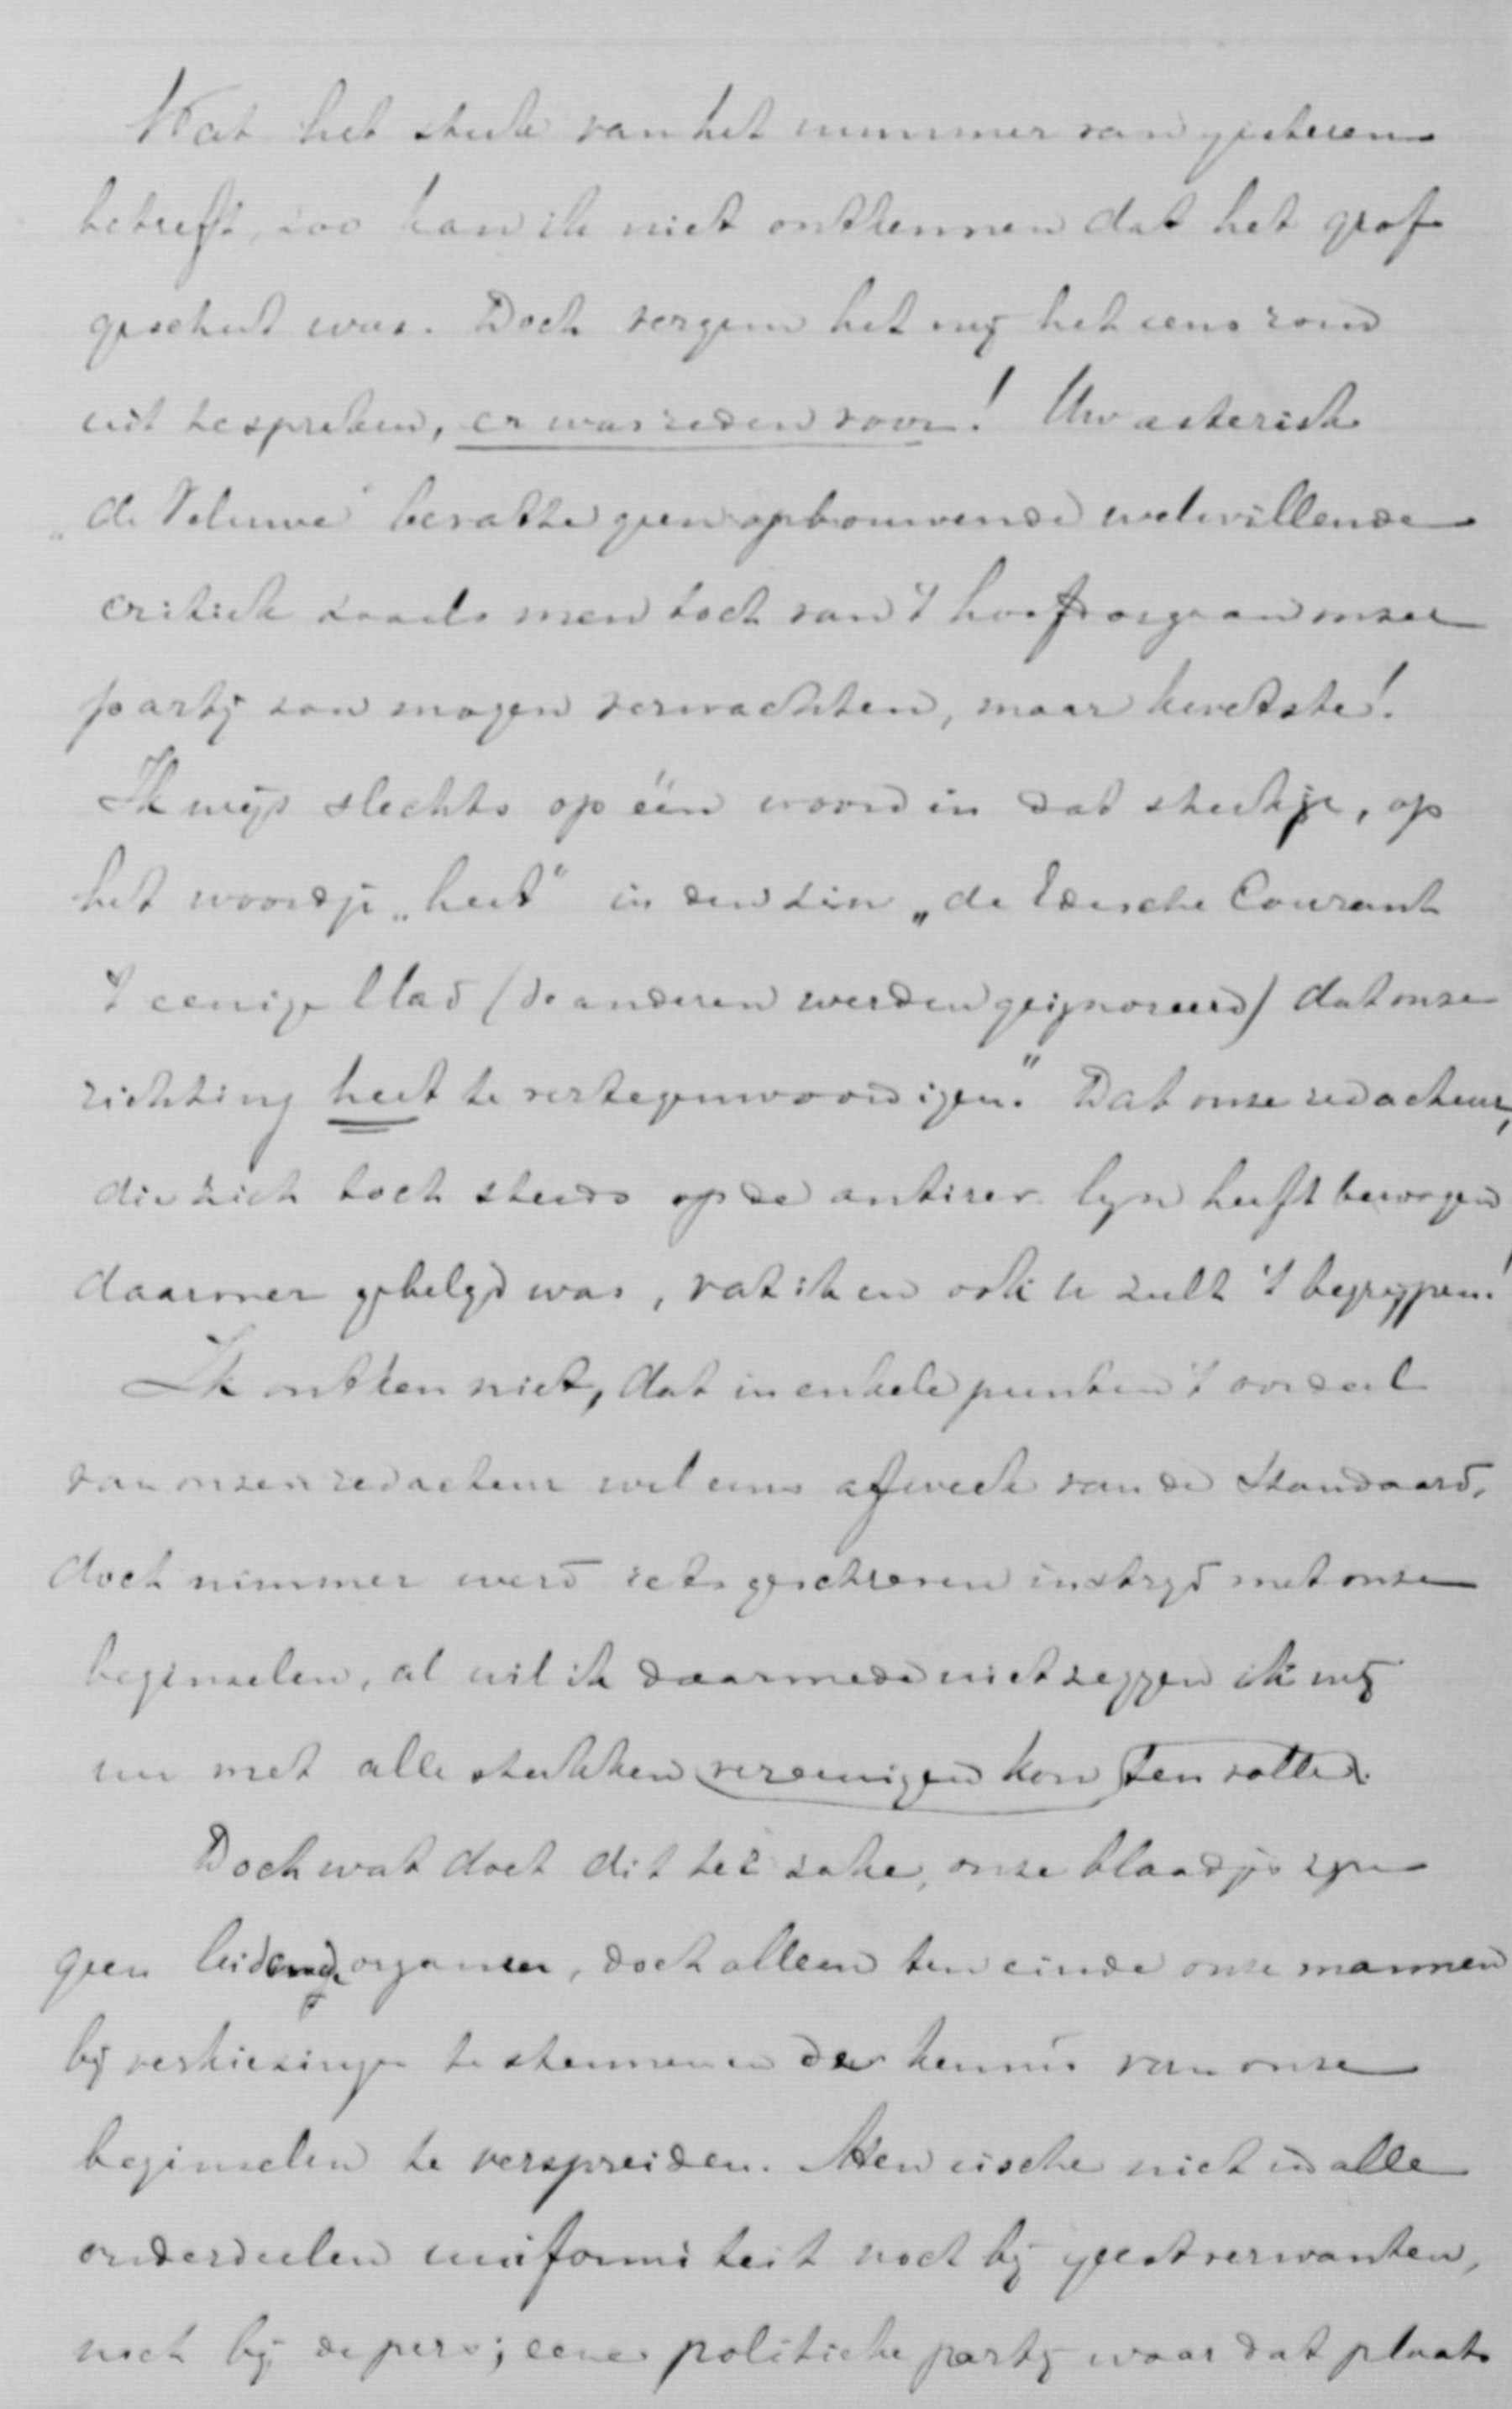 Wat het stuk van het nummer van gisteren
betreft, zoo kan ik niet ontkennen dat het grof
geschut was. Doch vergun het mij het eens rond
uit te spreken, er was reden voor! Uw asterisk
„de Veluwe" bevatte geen opbouwende welwillende
critiek zooals men toch van 't hoofdorgaan onzer
partij zou mogen verwachten, maar kwetste!
Ik wijs slechts op één woord in dat stukje, op
het woordje „heet" in den zin „de Edesche Courant
't eenige blad (de anderen werden geignoreerd) dat onze
richting heet te vertegenwoordigen." Dat onze redacteur,
die zich toch steeds op de antirev. lijn heeft bewogen
daarover gebelgd was, vat ik en ook U zult 't begrijpen!
Ik ontken niet, dat in enkele punten 't oordeel
van onzen redacteur wel eens afweek van de Standaard,
doch nimmer werd iets geschreven in strijd met onze
beginselen, al wil ik daarmede niet zeggen ik mij
nu met alle stukken vereenigen kon ten volle.
Doch wat doet dit ter zake, onze blaadjes zijn
geen leidende organen, doch alleen ten einde onze mannen
bij verkiezingen te steunen en de kennis van onze
beginselen te verspreiden. Men eische niet in alle
onderdeelen uniformiteit noch bij geestverwanten,
noch bij de pers; eene politieke partij waar dat plaats